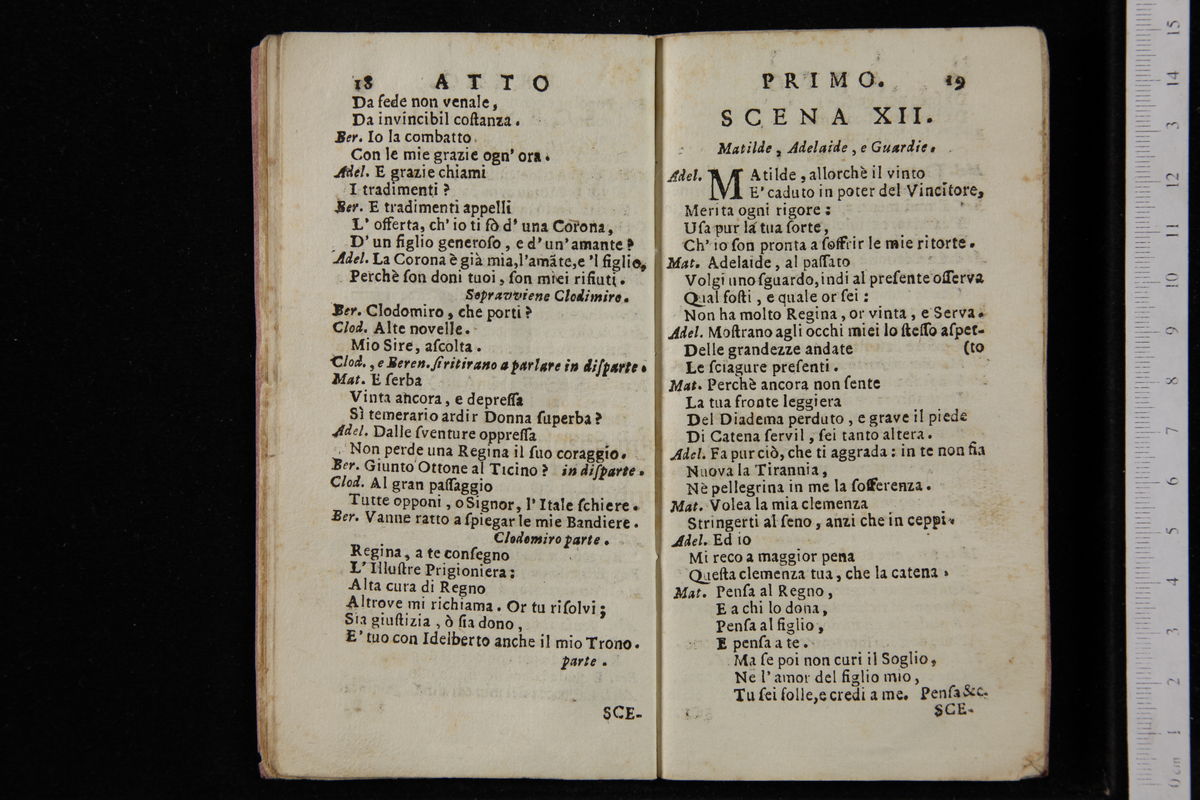 18 ATTO
Da fede non venale,
Da invincibil coſtanza.
Ber. Io la combatto
Con le mie grazie ogn' ora.
Adel. E grazie chiami
I tradimenti?
Ber. E tradimenti appelli
L' offerta, ch' io ti fò d' una Corona,
D' un figlio generoſo, e d' un' amante?
Adel. La Corona è già mia, l'amãte, e 'l figlio,
Perchè ſon doni tuoi, ſon miei rifiuti.
Sopravviene Clodimiro.
Ber. Clodomiro, che porti?
Clod. Alte novelle.
Mio Sire, aſcolta.
Clod., e Beren. ſi ritirano a parlare in diſparte.
Mat. E ſerba
Vinta ancora, e depreſſa
Sì temerario ardir Donna ſuperba?
Adel. Dalle ſventure oppreſſa
Non perde una Regina il ſuo coraggio.
Ber. Giunto Ottone al Ticino? in diſparte.
Clod. Al gran paſſaggio
Tutte opponi, o Signor, l' Itale ſchiere.
Ber. Vanne ratto a ſpiegar le mie Bandiere.
Clodomiro parte.
Regina, a te conſegno
L' Illuſtre Prigioniera:
Alta cura di Regno
Altrove mi richiama. Or tu riſolvi;
Sia giuſtizia, ò ſia dono,
E' tuo con Idelberto anche il mio Trono.
parte.
SCE-
PRIMO. 19
SCENA XII.
Matilde, Adelaide, e Guardie.
Adel. MAtilde, allorchè il vinto
E' caduto in poter del Vincitore,
Merita ogni rigore:
Uſa pur la tua ſorte,
Ch' io ſon pronta a ſoffrir le mie ritorte.
Mat. Adelaide, al paſſato
Volgi uno ſguardo, indi al preſente oſſerva
Qual foſti, e quale or ſei:
Non ha molto Regina, or vinta, e Serva.
Adel. Moſtrano agli occhi miei lo ſteſſo aſpet-
Delle grandezze andate (to
Le ſciagure preſenti.
Mat. Perchè ancora non ſente
La tua fronte leggiera
Del Diadema perduto, e grave il piede
Di Catena ſervil, ſei tanto altera.
Adel. Fa pur ciò, che ti aggrada: in te non fia
Nuova la Tirannia,
Nè pellegrina in me la ſofferenza.
Mat. Volea la mia clemenza
Stringerti al ſeno, anzi che in ceppi.
Adel. Ed io
Mi reco a maggior pena
Queſta clemenza tua, che la catena.
Mat. Penſa al Regno,
E a chi lo dona,
Penſa al figlio,
E penſa a te.
Ma ſe poi non curi il Soglio,
Ne l' amor del figlio mio,
Tu ſei folle, e credi a me. Penſa &c.
SCE-
0 cm 1 2 3 4 5 6 7 8 9 10 11 12 13 14 15